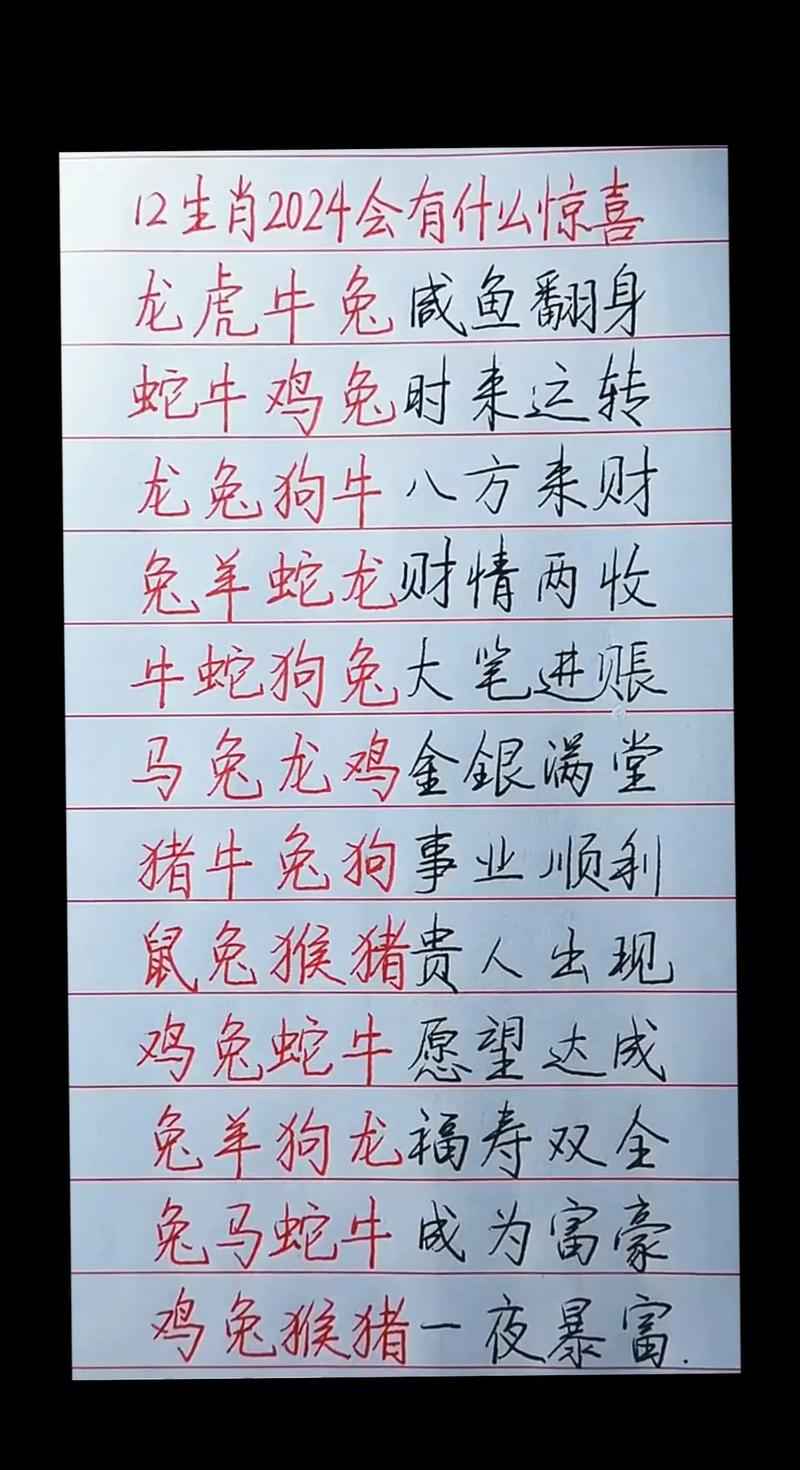 12生肖2024会有什么惊喜
龙虎牛兔咸鱼翻身
蛇牛鸡兔时来运转
龙兔狗牛八方来财
兔羊蛇龙财情两收
牛蛇狗兔大笔进賬
马兔龙鸡金銀满堂
猪牛兔狗事业顺利
鼠兔猴猪贵人出现
鸡兔蛇牛愿望达成
兔羊狗龙福寿双全
兔马蛇牛成为富豪
鸡兔猴猪一夜暴富.